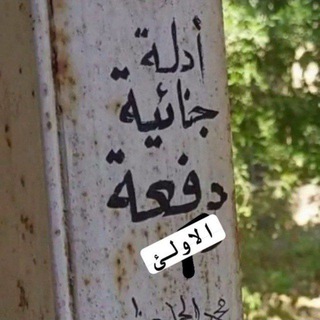 أدلة
جنائية
دفعة
الاولئ